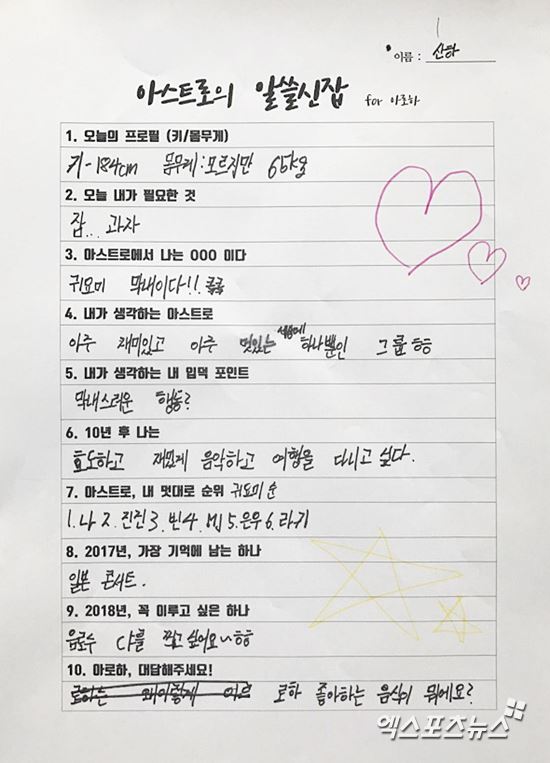 이름 : 산하
아스트로의 알쓸신잡 for 아로하
1. 오늘의 프로필 (키/몸무게)
키-184cm 몸무게:모르지만 65kg요
2. 오늘 내가 필요한 것
잠... 과자
3. 아스트로에서 나는 OOO 이다
귀요미 막내이다!! 큭큭
4. 내가 생각하는 아스트로
아주 재미있고 아주 멋있는 세상에 하나뿐인 그룹ㅎㅎ
5. 내가 생각하는 내 입덕 포인트
막내스러운 행동?
6. 10년 후 나는
효도하고 재밌게 음악하고 여행을 다니고 싶다.
7. 아스트로, 내 멋대로 순위 귀요미 순
1.나 2.진진 3.빈 4.MJ 5.은우 6.라키
8. 2017년, 가장 기억에 남는 하나
일본 콘서트.
9. 2018년, 꼭 이루고 싶은 하나
음료수 CF를 찍고 싶어요~ㅎㅎ
10. 아로하, 대답해주세요!
로하 좋아하는 음식이 뭐에요?
엑스포츠뉴스